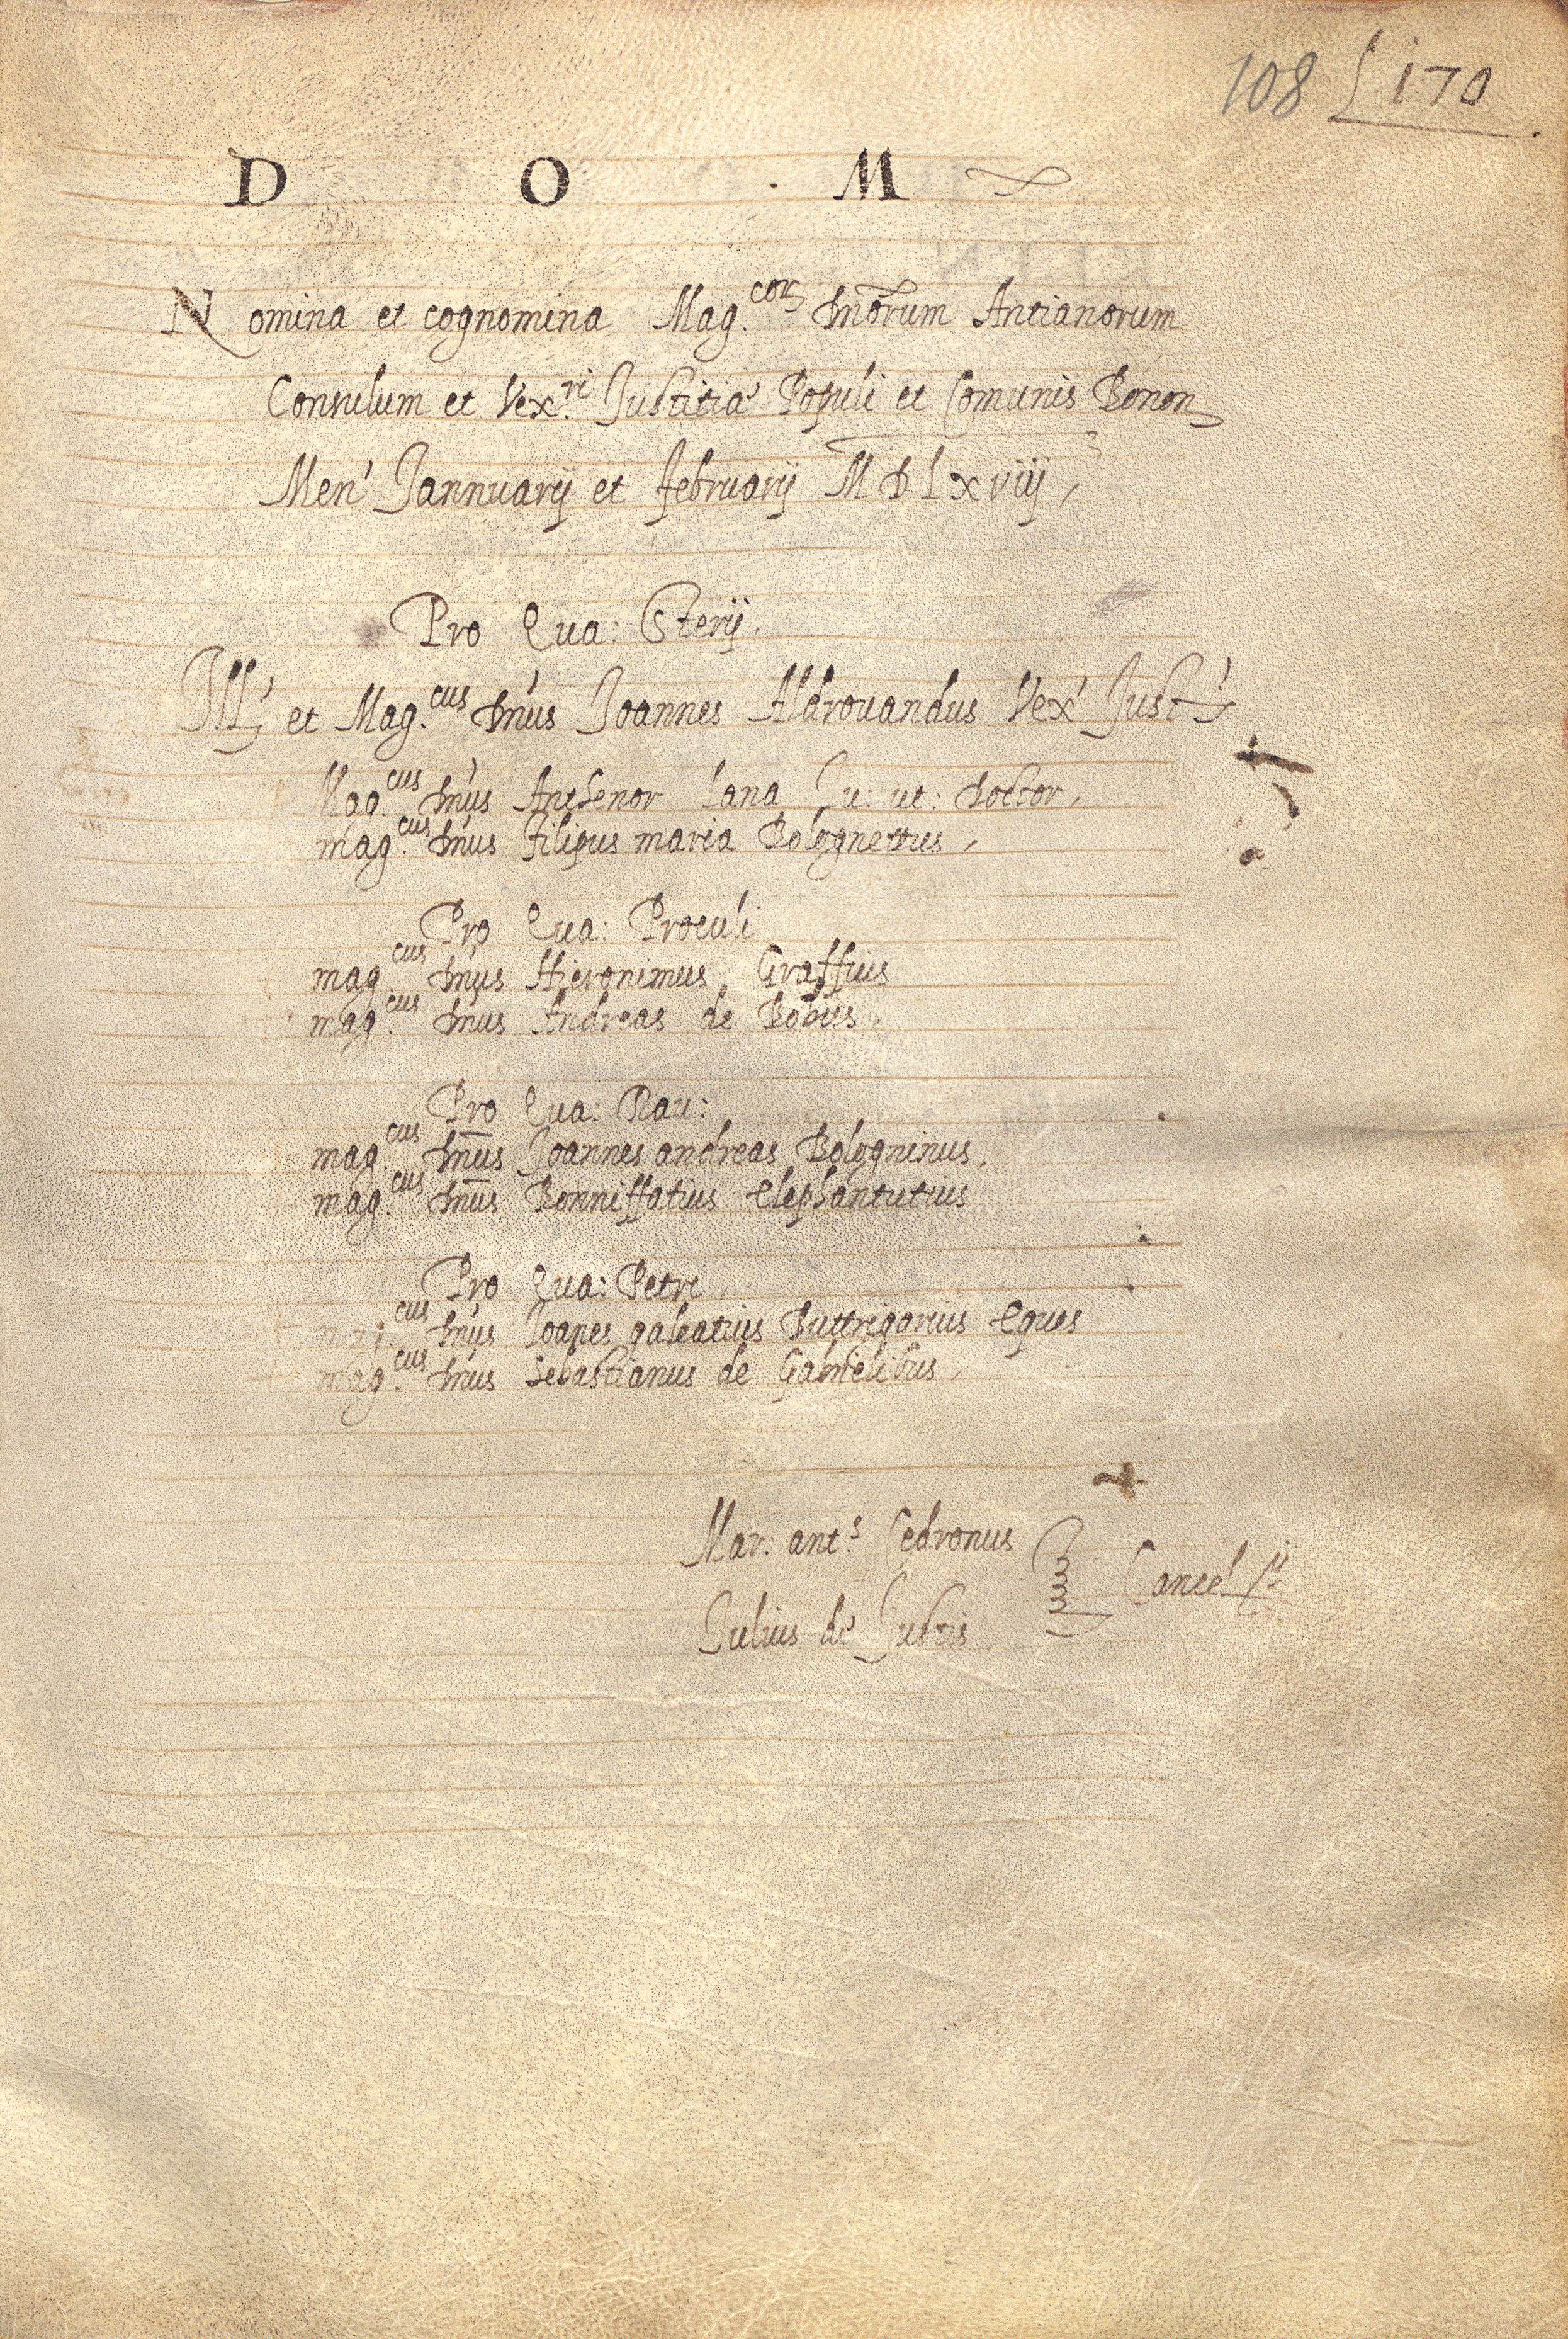 108 170
D O M
Nomina et cognomina Mag.cor̃ Dnõrum Antianorum
Consulum et Vex.ri Justitiæ Populi et Comunis Bonon
Men' Jannuarij et februarij MDLxviij
Pro Qua: Sterij.
Ill' et Mag.cus Dn̕us Joannes Aldrovandus Vex' Just'
Mag.cus Dn̕us Anthenor Lana Ju: ut: Doctor,
mag.cus Dn̕us filipus maria Bolognettus,
Pro Qua: Proculi
mag.cus Dn̕us Hieronimus Graffius
mag.cus Dn̕us Andreas de Bobus.
Pro Qua: Rav:
mag.cus Dn̄us Joannes andreas Bologninus,
mag.cus Dn̄us Bonniffatius elephantutius
Pro Qua: Petri,
mag.cus Dn̕us Joanes galeatius Buttrigarius eques
mag.cus Dn̕us Sebastianus de Gabrielibus,
Mar: ant.s Cedronus
Cancel.ij
Julius de Justis